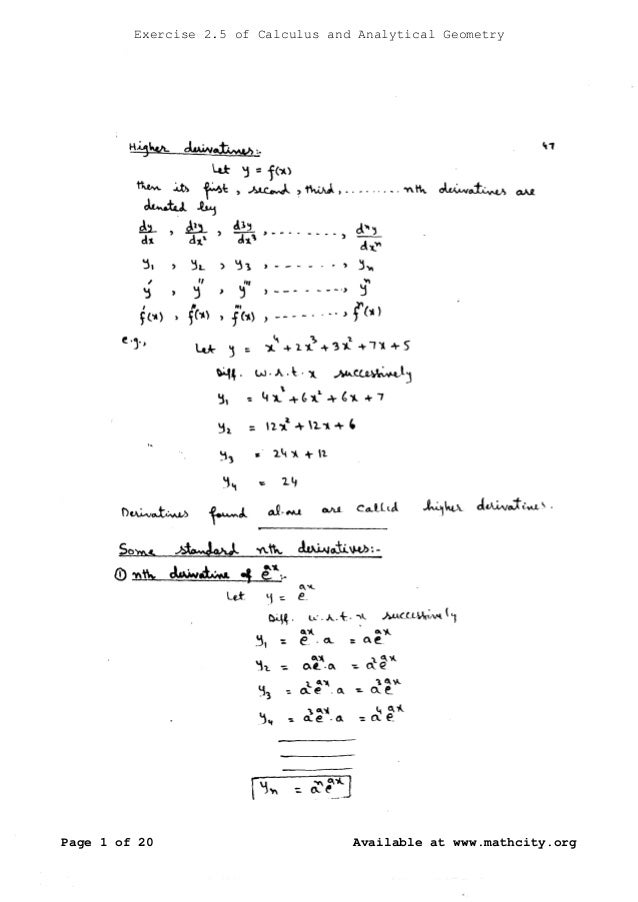 Exercise 2.5 of Calculus and Analytical Geometry
47
Higher derivatives:-
Let y = f(x)
then its first, second, third, ......... nth derivatives are
denoted by
dy/dx , d²y/dx² , d³y/dx³ , --------, dⁿy/dxⁿ
y₁ , y₂ , y₃ , ------, yₙ
y′ , y″ , y‴ , -------, yⁿ
f′(x) , f″(x) , f‴(x) , -------, fⁿ(x)
e.g., Let y = x⁴ + 2x³ + 3x² + 7x + 5
Diff. w.r.t. x successively
y₁ = 4x³ + 6x² + 6x + 7
y₂ = 12x² + 12x + 6
y₃ = 24x + 12
y₄ = 24
Derivatives found above are called higher derivatives.
Some standard nth derivatives:-
① nth derivative of eᵃˣ:-
Let y = eᵃˣ
Diff. w.r.t. x successively
y₁ = eᵃˣ . a = aeᵃˣ
y₂ = aeᵃˣ . a = a²eᵃˣ
y₃ = a²eᵃˣ . a = a³eᵃˣ
y₄ = a³eᵃˣ . a = a⁴eᵃˣ
yₙ = aⁿeᵃˣ
Page 1 of 20
Available at www.mathcity.org